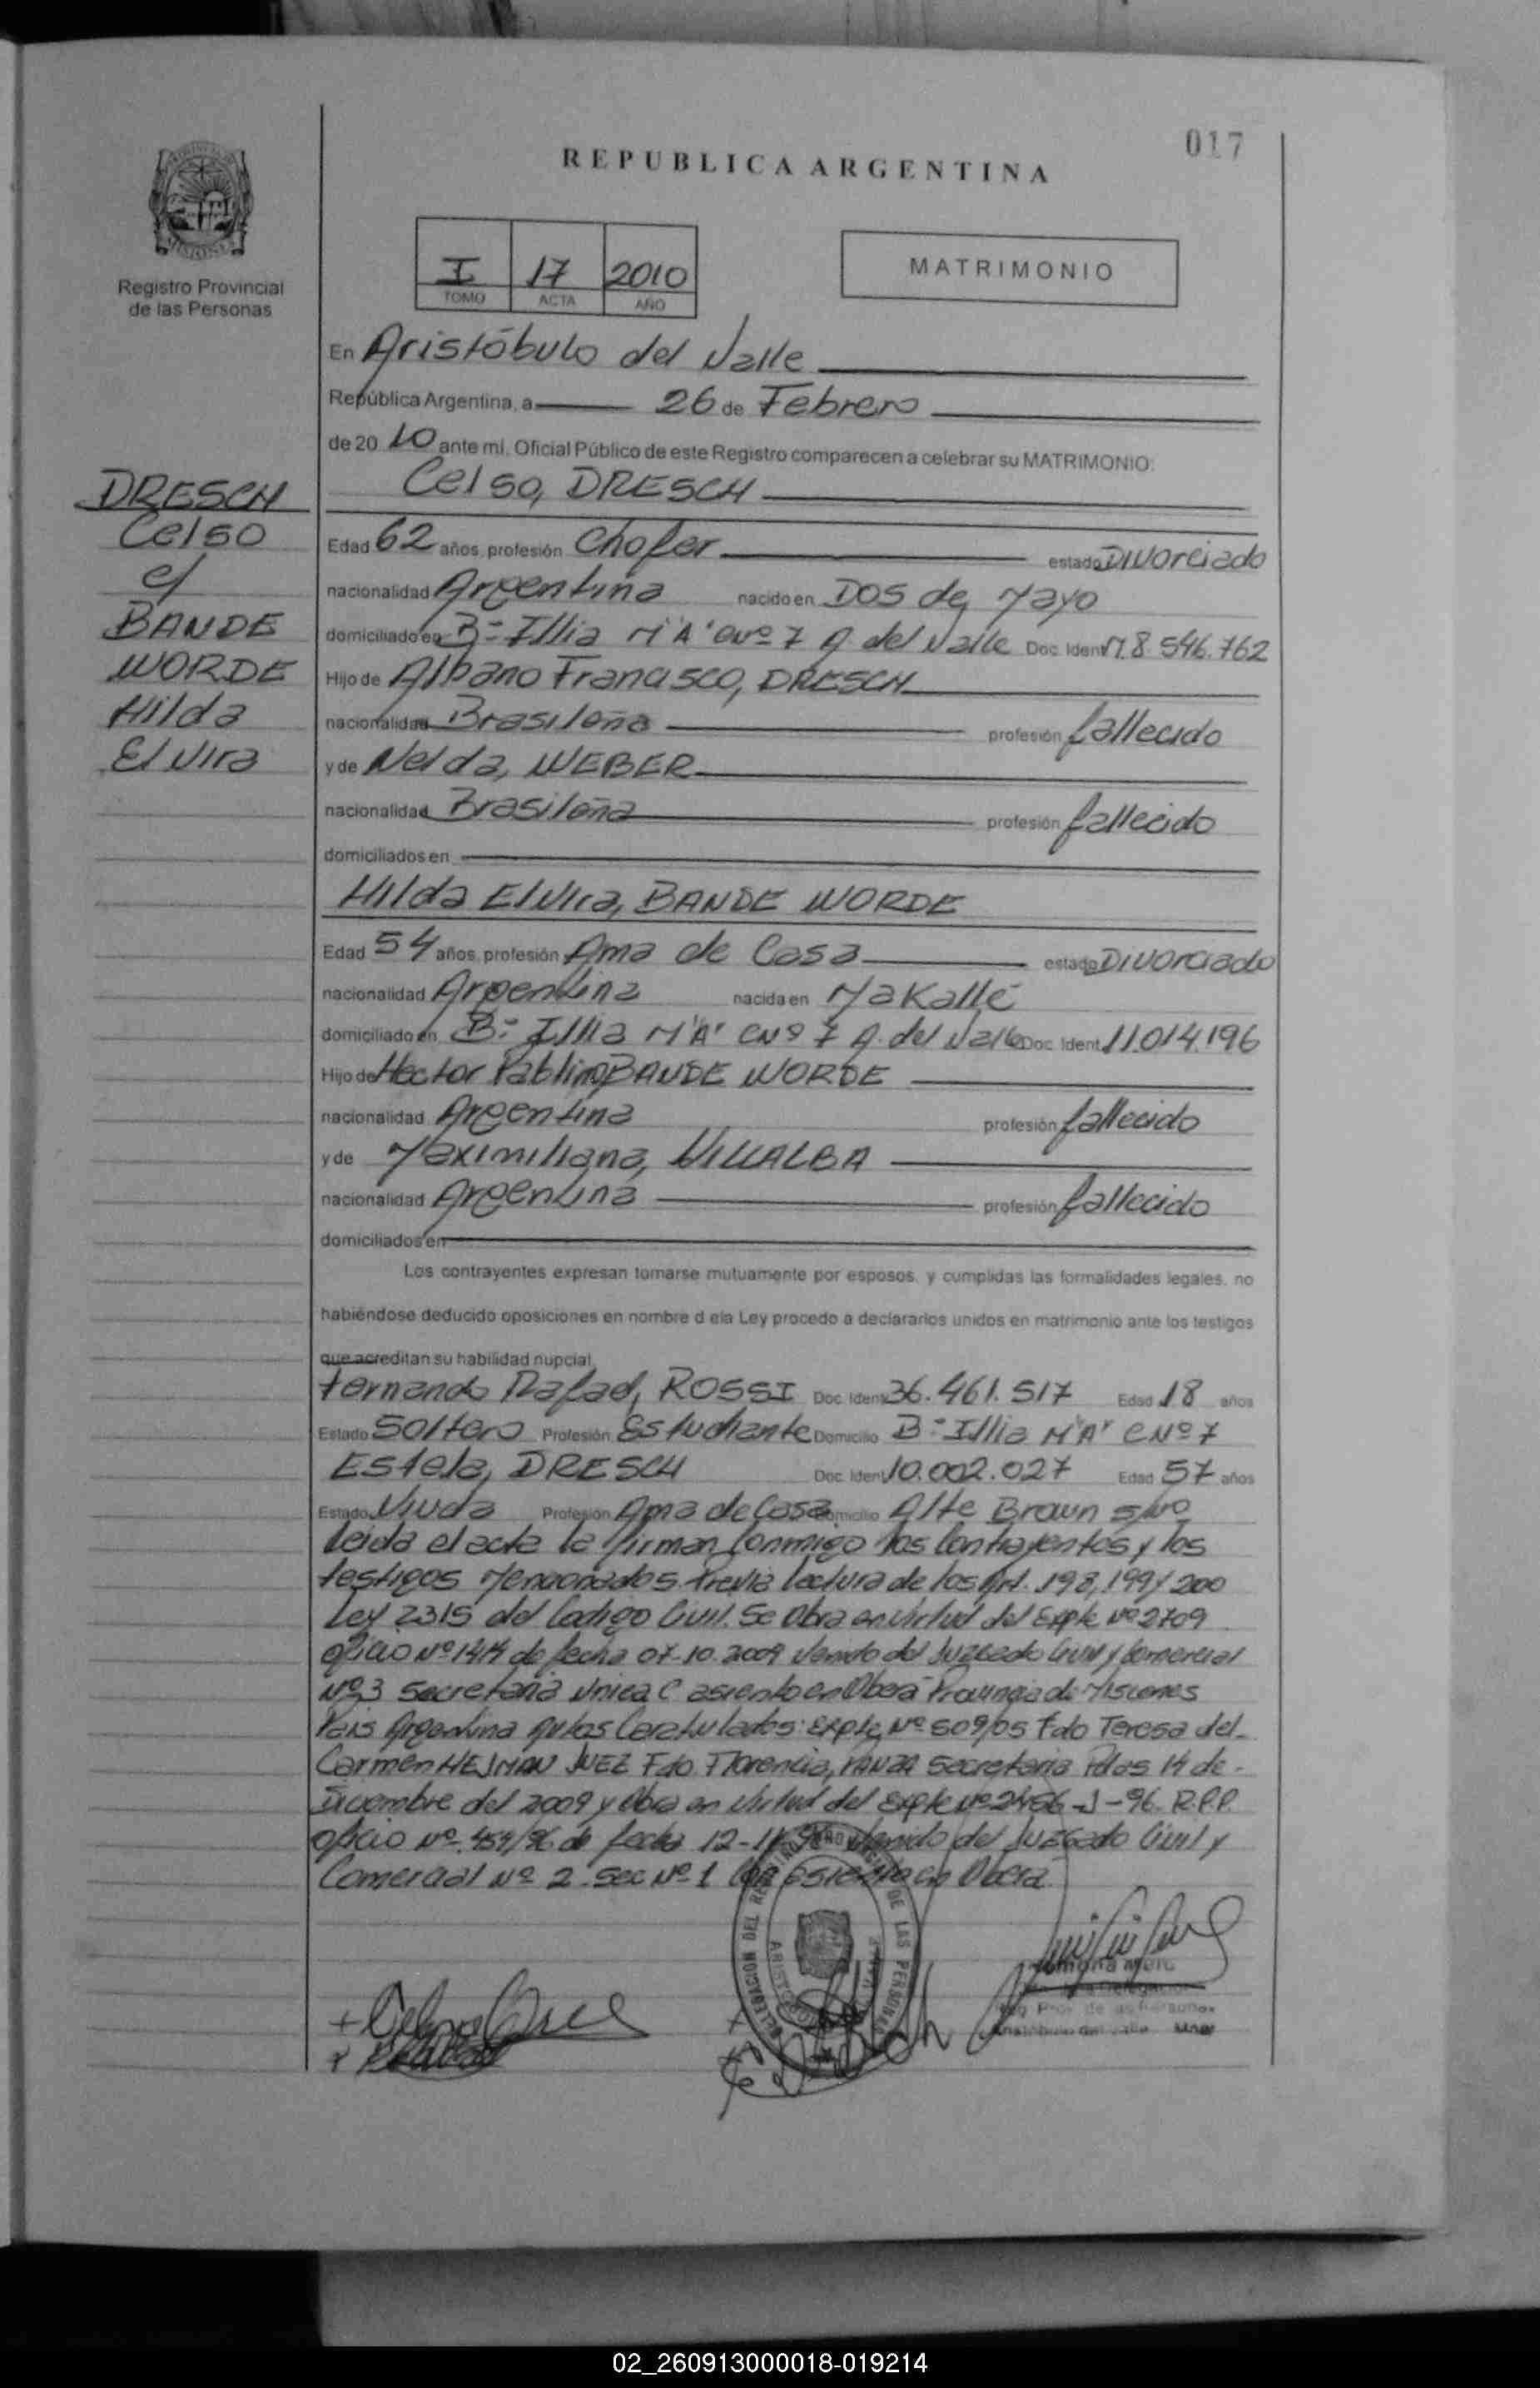 017
REPUBLICA ARGENTINA
I 17 2010
TOMO ACTA AÑO
MATRIMONIO
Registro Provincial
de las Personas
DRESCH
Celso
c/
BANDE
WORDE
Hilda
Elvira
En Aristóbulo del Valle
República Argentina, a 26 de Febrero
de 20 10 ante mi, Oficial Público de este Registro comparecen a celebrar su MATRIMONIO:
Celso, DRESCH
Edad 62 años, profesión Chofer estado Divorciado
nacionalidad Argentina nacido en Dos de Mayo
domiciliado en B= Illia M"A" CNº 7 A. del Valle Doc. Ident M.8.546.762
Hijo de Albano Francisco, DRESCH
nacionalidad Brasileña profesión fallecido
y de Nelda, WEBER
nacionalidad Brasileña profesión fallecido
domiciliados en
Hilda Elvira, BANDE WORDE
Edad 54 años, profesión Ama de Casa estado Divorciado
nacionalidad Argentina nacida en Makallé
domiciliado en B= Illia M"A" CNº 7 A. del Valle Doc. Ident. 11.014.196
Hijo de Hector Pablino, BANDE WORDE
nacionalidad Argentina profesión fallecido
y de Maximiliana, VILLALBA
nacionalidad Argentina profesión fallecido
domiciliados en
Los contrayentes expresan tomarse mutuamente por esposos, y cumplidas las formalidades legales, no
habiéndose deducido oposiciones en nombre d ela Ley procedo a declararlos unidos en matrimonio ante los testigos
que acreditan su habilidad nupcial.
Fernando Rafael, ROSSI Doc. Ident 36.461.517 Edad 18 años
Estado Soltero Profesión Estudiante Domicilio B= Illia M"A" CNº 7
Estela, DRESCH Doc. Ident 10.002.027 Edad 57 años
Estado Viuda Profesión Ama de Casa Domicilio Alte Brown S/Nº
Leida el acta la firman conmigo los Contrayentes y los
testigos Mencionados. Previa lectura de los Art. 198, 199 y 200
Ley 2315 del Codigo Civil. Se Obra en virtud del Expte Nº 2709
oficio Nº 1414 de fecha 07-10-2009 Venido del Juzgado Civil y Comercial
Nº 3 Secretaria Unica C asiento en Oberá Provincia de Misiones
Pais Argentina Autos Caratulados: Expte Nº 509/05 Fdo Teresa del
Carmen HEJMAN JUEZ Fdo. Florencia, Secretaria Pdas 14 de-
Diciembre del 2009 y Obra en Virtud del Expte Nº 2456-J-96 R.P.P.
oficio Nº 459/96 de fecha 12-11-96 Venido del Juzgado Civil y
Comercial Nº 2. Sec Nº 1 Con asiento en Oberá.
DELEGACION DEL REGISTRO PROVINCIAL DE LAS PERSONAS
02_260913000018-019214